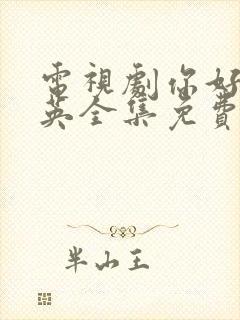 電視劇你好
英全集免費
半山王